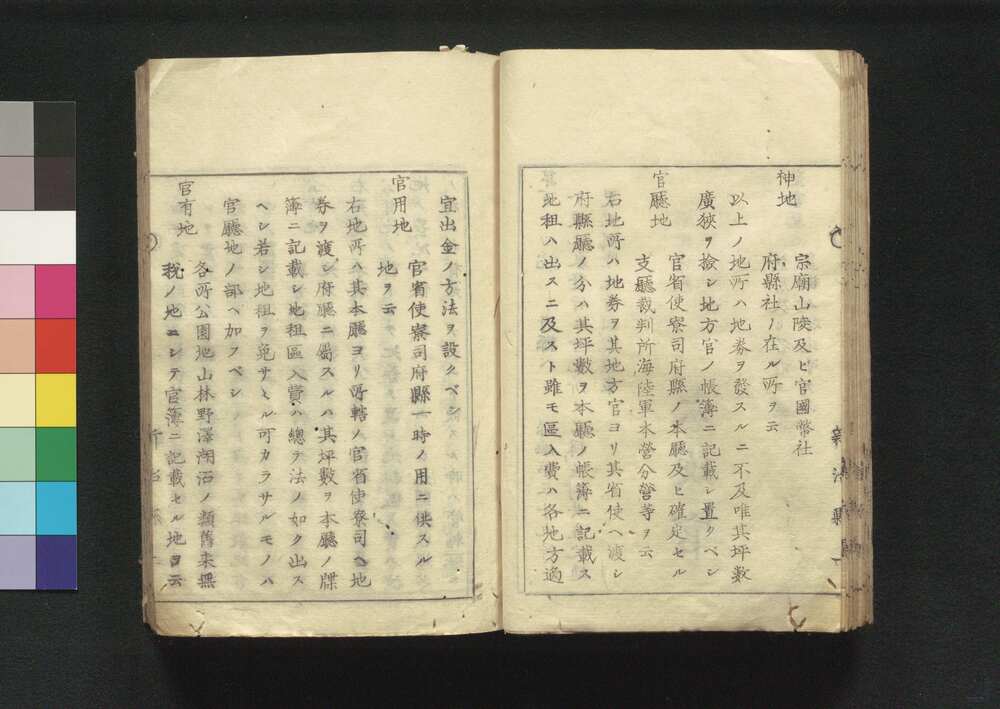 神地
宗廟山陵及ヒ官國幣社
府縣社ノ在ル所ヲ云
以上ノ地所ハ地券ヲ發スルニ不及唯其坪數
廣狹ヲ撿シ地方官ノ帳簿ニ記載シ置クベシ
官廳地
官省使寮司府縣ノ本廳及ヒ確定セル
支廳裁判所海陸軍本營分營等ヲ云
右地所ハ地券ヲ其地方官ヨリ其省使ヘ渡シ
府縣廳ノ分ハ其坪數ヲ本廳ノ帳簿ニ記載ス
地租ハ出スニ及スト雖モ區入費ハ各地方適
宜出金ノ方法ヲ設クベシ
官用地
官省使寮司府縣一時ノ用ニ供スル
地ヲ云
右地所ハ其本廳ヨリ所轄ノ官省使寮司ヘ地
券ヲ渡シ府廳ニ屬スルハ其坪數ヲ本廳ノ牒
簿ニ記載シ地租區入費ハ總テ法ノ如ク出ス
ヘシ若シ地租ヲ免サヽル可カラサルモノハ
官廳地ノ部ヘ加フベシ
官有地
各所公園地山林野澤湖沼ノ類舊来無
税ノ地ニシテ官簿ニ記載セル地ヲ云
新治縣